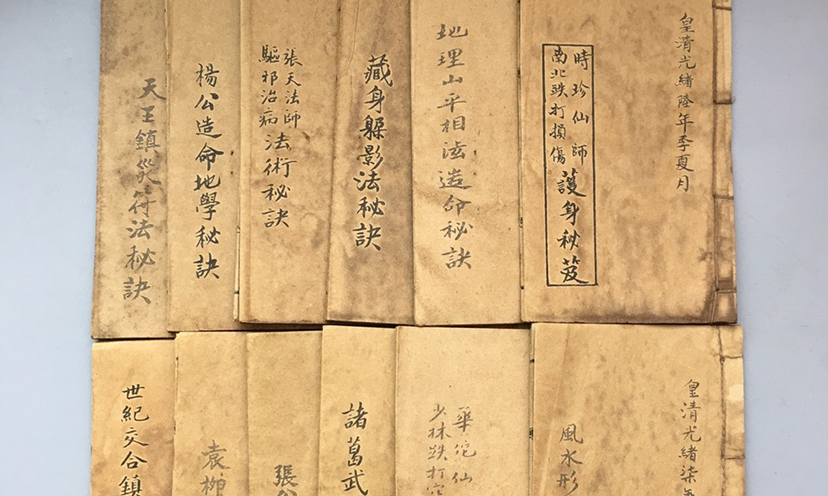 皇清光緒陸年季夏月
時珍仙師
南北跌打損傷
護身秘笈
地理山平相法造命秘訣
藏身躲影法秘訣
張天法師
驅邪治病
法術秘訣
楊公造命地學秘訣
天王鎮災符法秘訣
皇清光緒柒
風水形
華佗仙
少林跌打
諸葛武
張
袁柳
世紀交合鎮